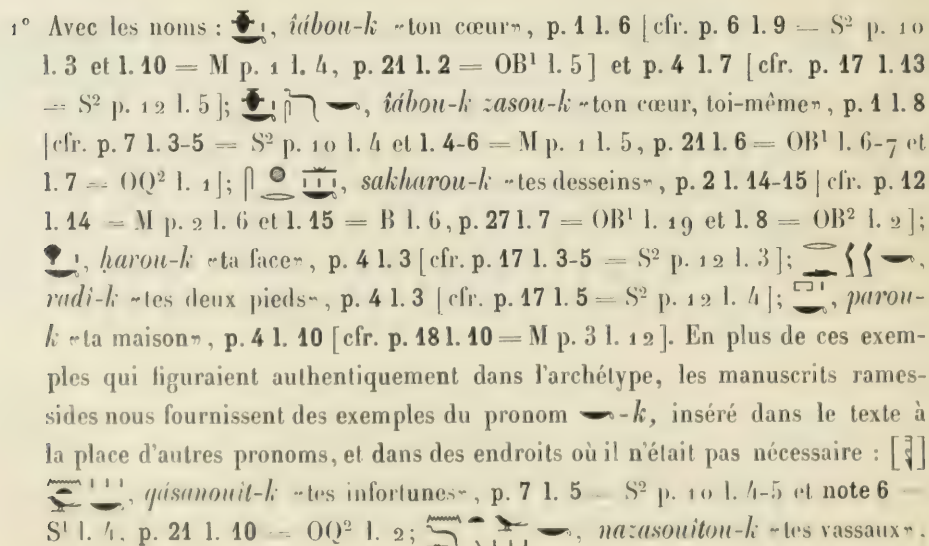 1° Avec les noms : 𓄣𓏤𓎡, îábou-k «ton cœur», p. 1 l. 6 [cfr. p. 6 l. 9 = S² p. 10
l. 3 et l. 10 = M p. 1 l. 4, p. 21 l. 2 = OB¹ l. 5] et p. 4 l. 7 [cfr. p. 17 l. 13
= S² p. 12 l. 5]; îábou-k zasou-k «ton cœur, toi-même», p. 1 l. 8
[cfr. p. 7 l. 3-5 = S² p. 10 l. 4 et l. 4-6 = M p. 1 l. 5, p. 21 l. 6 = OB¹ l. 6-7 et
l. 7 = OQ² l. 1]; sakharou-k «tes desseins», p. 2 l. 14-15 [cfr. p. 12
l. 14 = M p. 2 l. 6 et l. 15 = B l. 6, p. 27 l. 7 = OB¹ l. 19 et l. 8 = OB² l. 2];
𓁷𓏤𓎡, harou-k «ta face», p. 4 l. 3 [cfr. p. 17 l. 3-5 = S² p. 12 l. 3];
radî-k «tes deux pieds», p. 4 l. 3 [cfr. p. 17 l. 5 = S² p. 12 l. 4]; 𓉐𓏤𓎡, parou-
k «ta maison», p. 4 l. 10 [cfr. p. 18 l. 10 = M p. 3 l. 12]. En plus de ces exem-
ples qui figuraient authentiquement dans l'archétype, les manuscrits rames-
sides nous fournissent des exemples du pronom 𓎡 -k, inséré dans le texte à
la place d'autres pronoms, et dans des endroits où il n'était pas nécessaire :
qásanouît-k «tes infortunes», p. 7 l. 5 = S² p. 10 l. 4-5 et note 6 =
S¹ l. 4, p. 21 l. 10 = OQ² l. 2; nazasouîtou-k «tes vassaux»,